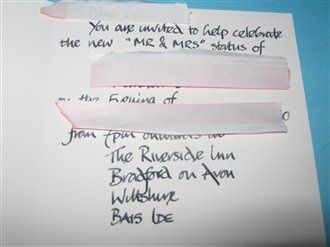 You are invited to help celebrate
the new "MR & MRS" status of
Evening of
from 7pm onwards at
The Riverside Inn
Bradford on Avon
Wiltshire
BA15 1DE